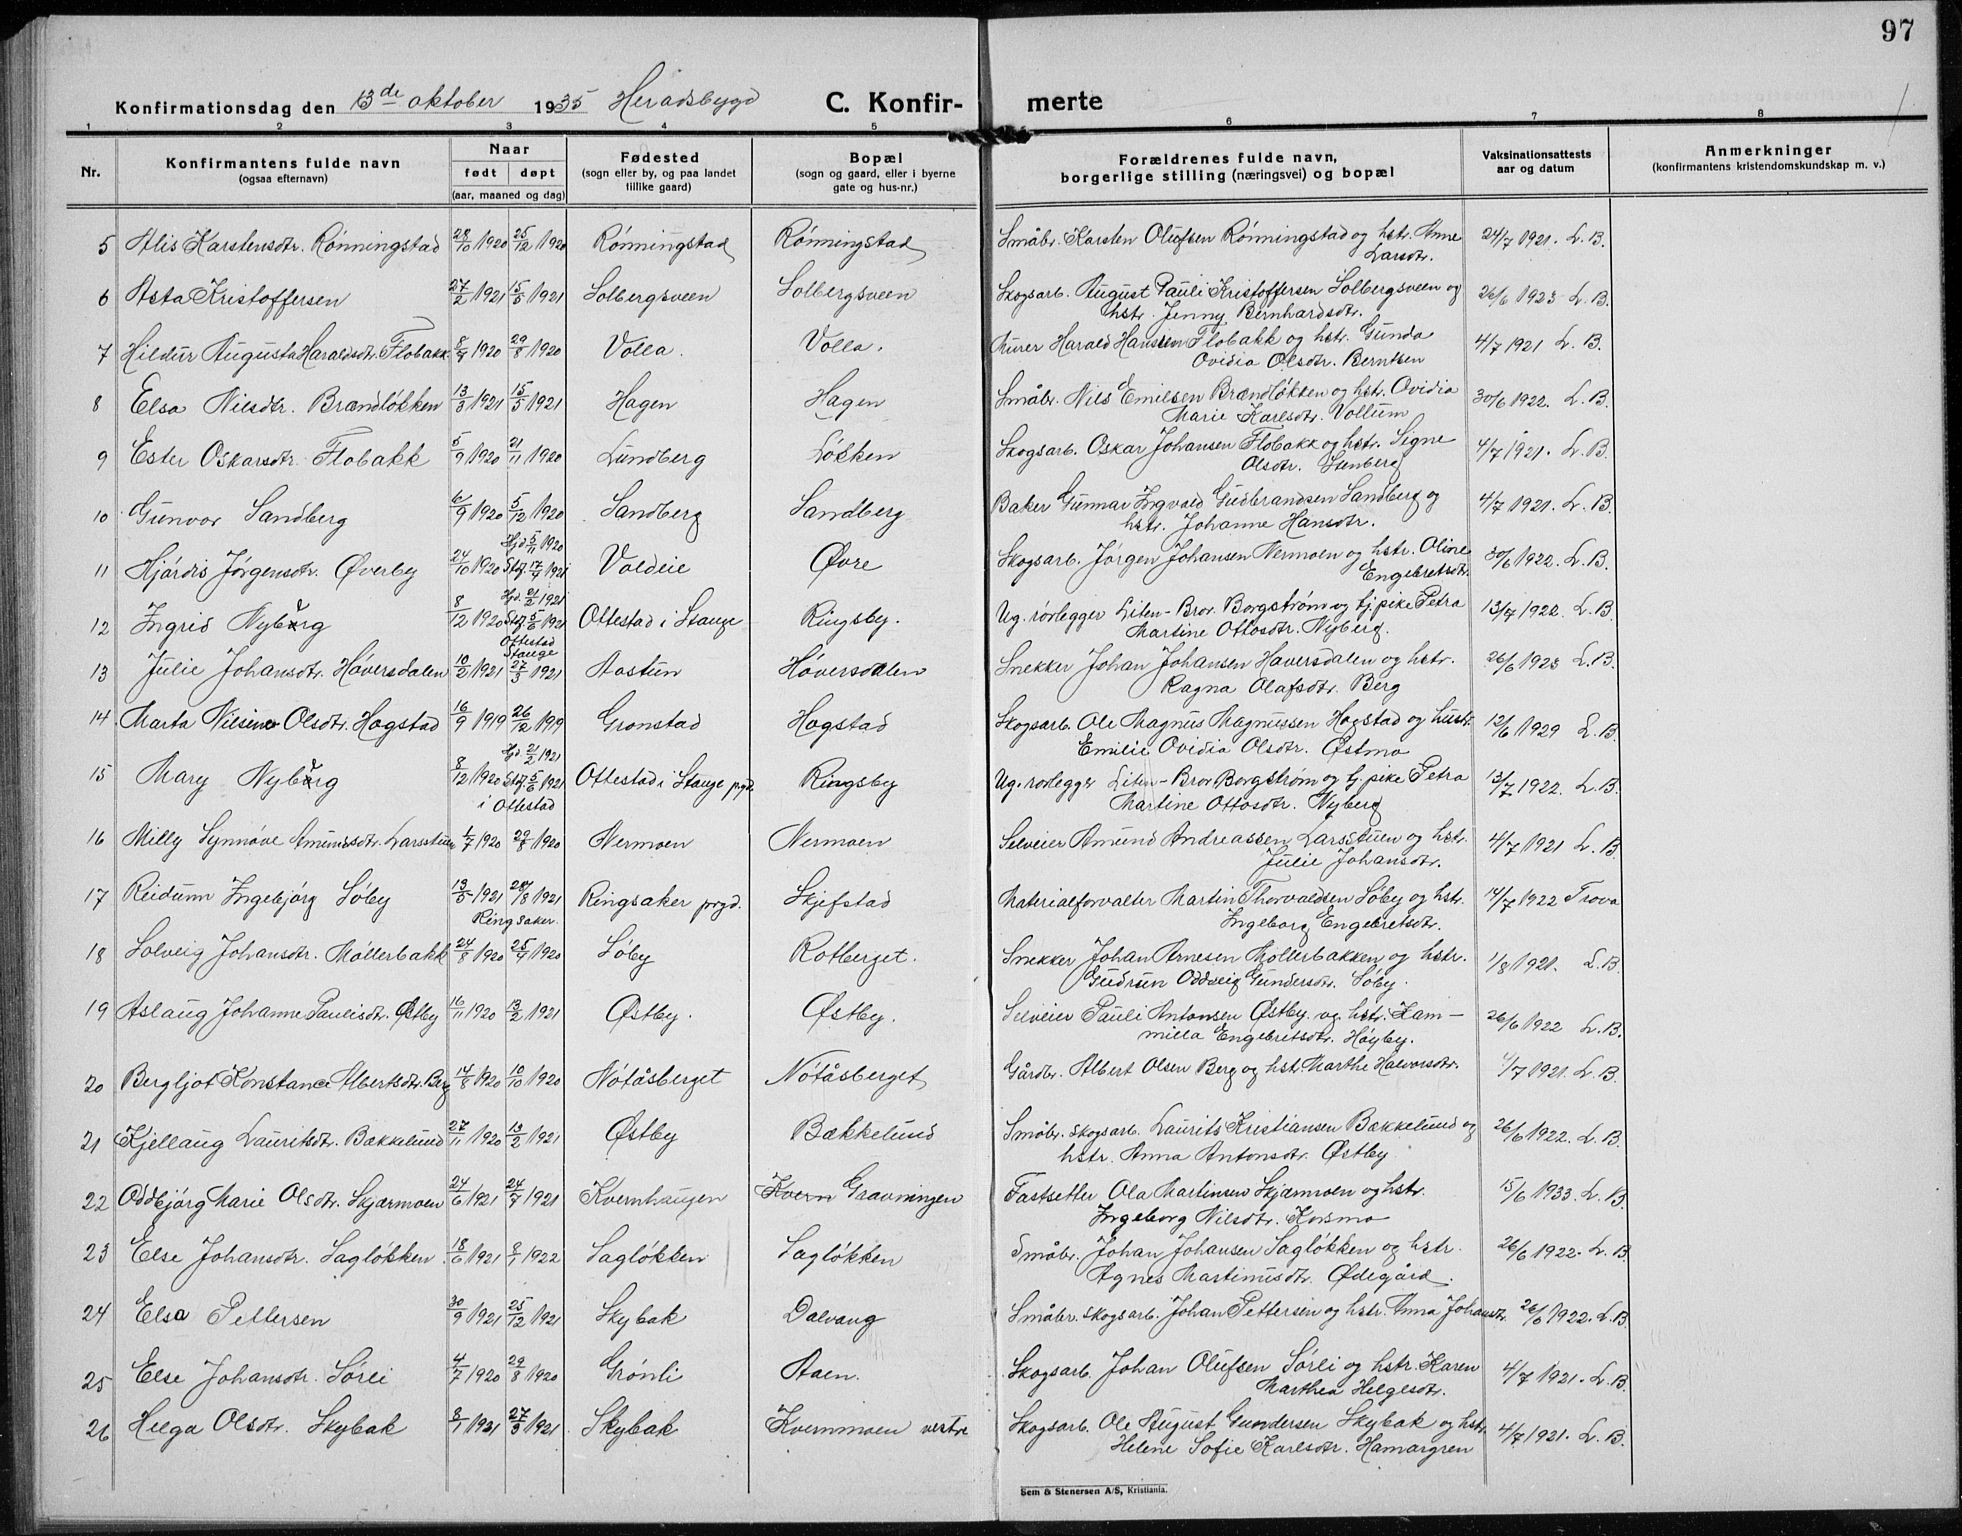 97
Konfirmationsdag den 13de oktober 1935 Heradsbygd C. Konfir- merte
1 2 3 4 5 6 7 8
Nr. Konfirmantens fulde navn (ogsaa efternavn) Naar født døpt (aar, maaned og dag) Fødested (sogn eller by, og paa landet tillike gaard) Bopæl (sogn og gaard, eller i byerne gate og hus-nr.) Forældrenes fulde navn, borgerlige stilling (næringsvei) og bopæl Vaksinationsattests aar og datum Anmerkninger (konfirmantens kristendomskundskap m. v.)
5 Alis Karstensdtr. Rönningstad 28/10 1920 25/12 1920 Rönningstad Rönningstad Småbr. Karsten Olufsen Rönningstad og hstr. Anne 24/7 1921. L. B.
Larsdtr.
6 Asta Kristoffersen 27/2 1921 15/5 1921 Solbergsveen Solbergsveen Skogsarb. August Pauli Kristoffersen Solbergsveen og 26/6 1923 L. B.
hstr. Jenny Bernhardsdtr.
7 Hildur Augusta Haraldsdtr. Flobakk 8/4 1920 29/8 1920 Volla. Volla. Murer Harald Hansen Flobakk og hstr. Gunda 4/7 1921 L. B.
Ovidia Olsdtr. Berntsen
8 Elsa Nilsdtr. Brændlökken 13/3 1921 15/5 1921 Hagen Hagen Småbr. Nils Emilsen Brændlökken og hstr. Ovidia 30/6 1922. L. B.
Marie Karlsdtr. Vollum
9 Ester Oskarsdtr. Flobakk 5/9 1920 21/11 1920 Lundberg Lökken Skogsarb. Oskar Johansen Flobakk og hstr. Signe 4/7 1921. L. B.
Olsdtr. Stenberg
10 Gunvor Sandberg 6/9 1920 5/12 1920 Sandberg Sandberg Baker Gunnar Ingvald Gudbrandsen Sandberg og 4/7 1921. L. B.
hstr. Johanne Hansdtr.
11 Hjördis Jörgensdtr. Øverby 24/10 1920 Hjd. 5/11 1920 Stf. 17/4 1921 Voldeie Øvre Skogsarb. Jörgen Johansen Nermoen og hstr. Oline 30/6 1922. L. B.
Engebretsdtr.
12 Ingrid Nyberg 8/12 1920 Hjd. 21/2 1921 Stf. 5/6 1921 Ottestad Stange Ottestad i Stange Ringsby. Ug. rörlegger Liten-Bror Borgström og tj.pike Petra 13/7 1922. L. B.
Martine Ottosdtr. Nyberg.
13 Julie Johansdtr. Höversdalen 10/2 1921 27/3 1921 Aastun Höversdalen Snekker Johan Johansen Haversdalen og hstr. 26/6 1923 L. B.
Ragna Olafsdtr. Berg
14 Marta Nilsine Olsdtr. Hagstad 16/9 1919 26/12 1919 Grønstad Hagstad Skogsarb. Ole Magnus Magnussen Hagstad og hustr. 12/6 1929 L. B.
Emilie Ovidia Olsdtr. Østmo
15 Mary Nyberg 8/12 1920 Hjd 21/2 1921 Stf. 5/6 1921 i Ottestad Ottestad i Stange prgd. Ringsby Ug. rörlegger Liten-Bror Borgström og tj.pike Petra 13/7 1922. L. B.
Martine Ottosdtr. Nyberg
16 Milly Synnöve Amundsdtr. Larsstuen 1/7 1920 29/8 1920 Nermoen Nermoen Selveier Amund Andreassen Larsstuen og hstr. 4/7 1921 L. B.
Julie Johansdtr.
17 Reidunn Ingebjörg Söby 13/5 1921 28/8 1921 Ringsaker. Ringsaker prgd. Skjefstad Materialforvalter Martin Thorvaldsen Söby og hstr. 14/7 1922 Trova
Ingeborg Engebretsdtr.
18 Solveig Johansdtr. Möllerbakk 24/8 1920 25/9 1920 Söby Rotberget. Snekker Johan Arnesen Möllerbakken og hstr. 1/8 1921. L. B.
Gudrun Oddveig Gundersdtr. Söby.
19 Aslaug Johanne Paulisdtr. Østby 16/11 1920 13/2 1921 Østby. Østby. Selveier Pauli Antonsen Østby. og. hstr. Kam-
milla Engebretsdtr. Höyby. 26/6 1922 L. B.
20 Bergljot Konstance Albertsdtr. Berg 14/8 1920 10/10 1920 Nötåsberget Nötåsberget Gårdbr. Albert Olsen Berg og hstr. Marthe Halvorsdtr. 4/7 1921. L. B.
21 Kjellaug Lauritsdtr. Bækkelund 27/11 1920 13/2 1921 Østby Bækkelund Småbr. Skogsarb. Laurits Kristiansen Bækkelund og 26/6 1922. L. B.
hstr. Anna Antonsdtr. Østby
22 Oddbjörg Marie Olsdtr. Skjærmoen 24/6 1921 24/7 1921 Kvernhaugen Kvern Gravningen Fastsetler Ola Martinsen Skjærmoen og hstr. 15/6 1933. L. B.
Ingeborg Nilsdtr. Korsmo
23 Else Johansdtr. Saglökken 18/6 1921 8/1 1922 Saglökken Saglökken Småbr. Johan Johansen Saglökken og hstr. 26/6 1922. L. B.
Agnes Martinusdtr. Ødegård.
24 Elsa Pettersen 30/9 1921 25/12 1921 Skybak Dalvang Småbr. Skogsarb. Johan Pettersen og hstr. Anna Johansdtr. 26/6 1922. L. B.
25 Else Johansdtr. Sörli 4/7 1920 29/8 1920 Grönli Aaen. Skogsarb. Johan Olufsen Sörli og hstr. Karen 4/7 1921. L. B.
Marthea Helgesdtr.
26 Helga Olsdtr. Skybak 8/1 1921 27/3 1921 Skybak Kvernmoen vestre Skogsarb. Ole August Gundersen Skybak og hstr. 4/7 1921. L. B.
Helene Sofie Karlsdtr. Hamargren
Sem & Stenersen A/S, Kristiania.